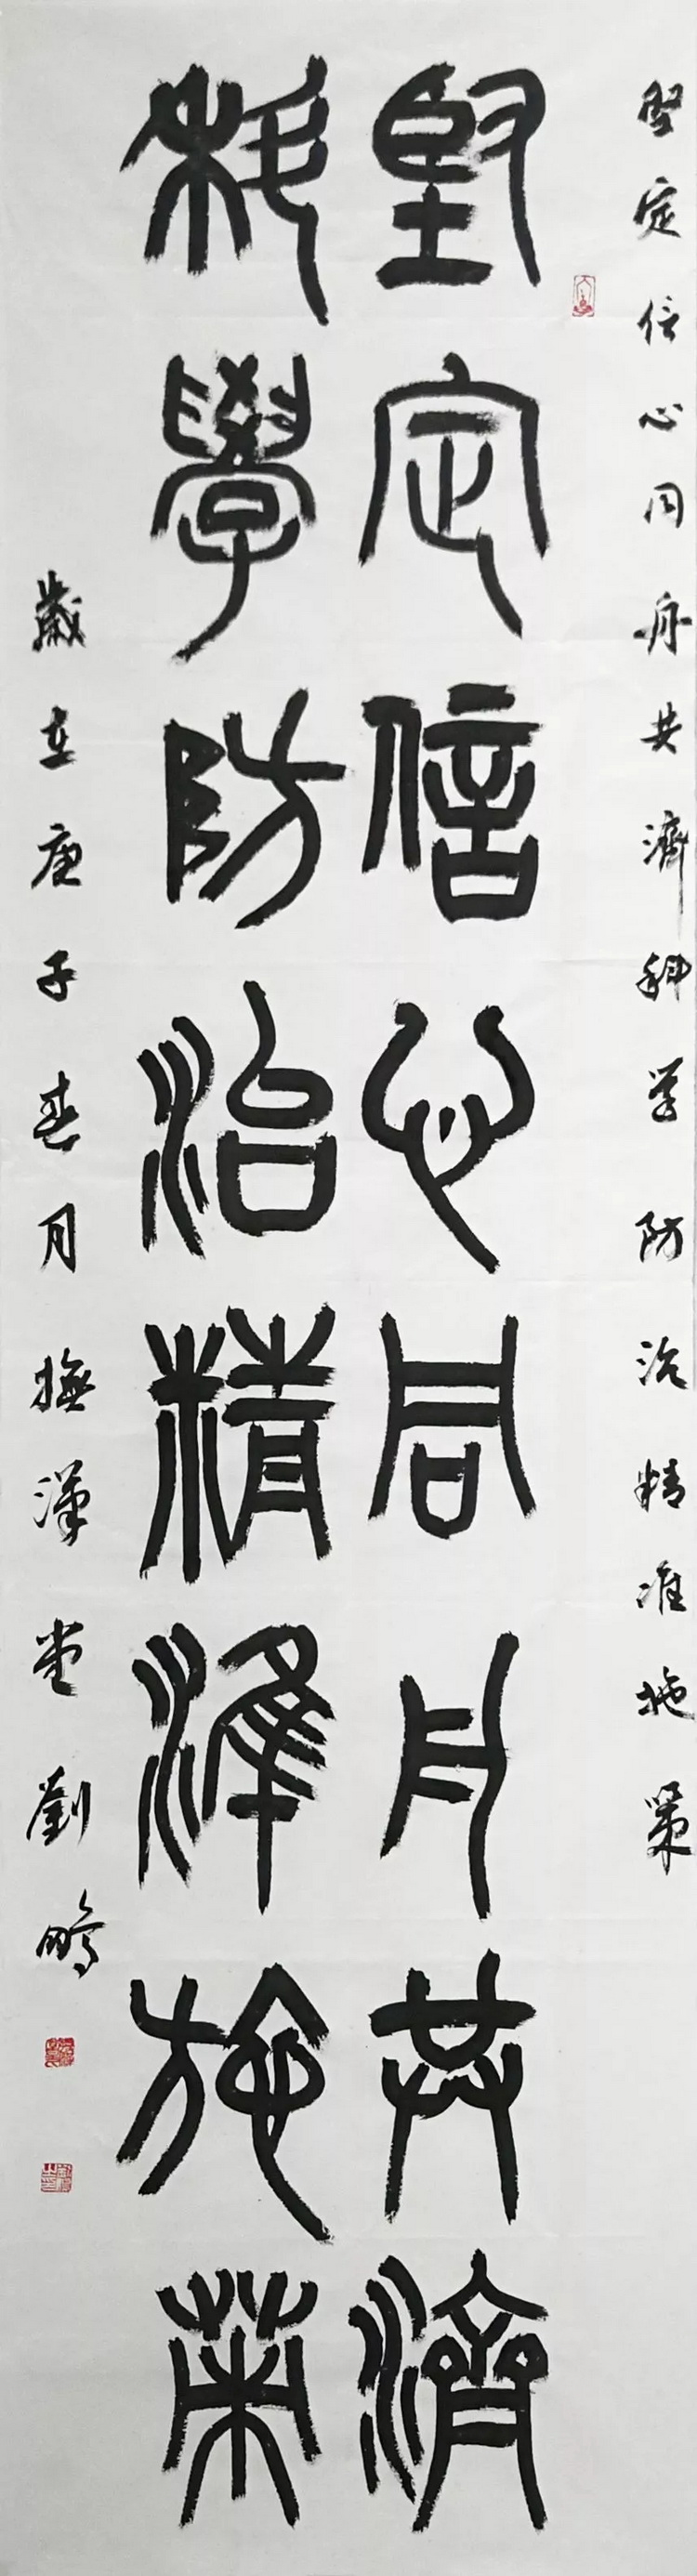 坚定信心同舟共濟科学防治精准施策
堅定信心同舟共濟
科學防治精準施策
歲在庚子春月撫漢堂劉鵬